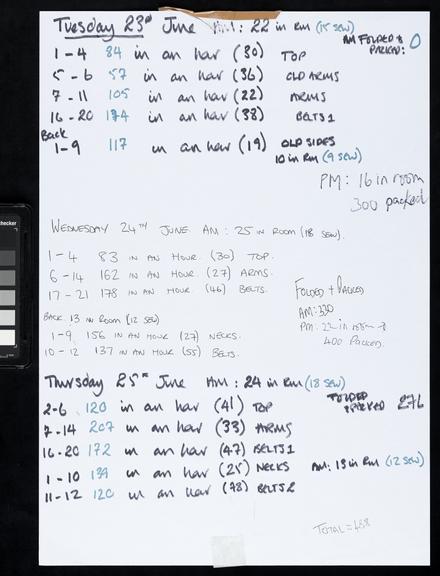 Tuesday 23rd June AM: 22 in Rm (15 SEW)
AM FOLDED & PACKED: 0
1-4 84 in an hour (30) TOP
5-6 57 in an hour (36) OLD ARMS
7-11 105 in an hour (22) ARMS
16-20 174 in an hour (38) BELTS 1
Back
1-9 117 in an hour (19) OLD SIDES
10 in Rm (9 SEW)
PM: 16 in room
300 packed
WEDNESDAY 24TH JUNE AM: 25 IN ROOM (18 SEW).
1-4 83 IN AN HOUR (30) TOP.
6-14 162 IN AN HOUR. (27) ARMS.
17-21 178 IN AN HOUR. (46) BELTS.
FOLDED + PACKED
AM: 330
PM: 22 in room →
400 PACKED.
BACK. 13 IN ROOM (12 SEW)
1-9 156 IN AN HOUR (27) NECKS.
10-12 137 IN AN HOUR (55) BELTS.
Thursday 25th June AM: 24 in Rm (18 SEW)
FOLDED & PACKED 276
2-6 120 in an hour (41) TOP
7-14 207 in an hour (33) ARMS
16-20 172 in an hour (47) BELTS 1
1-10 139 in an hour (25) NECKS AM: 13 in Rm (12 SEW)
11-12 120 in an hour (78) BELTS 2
TOTAL =